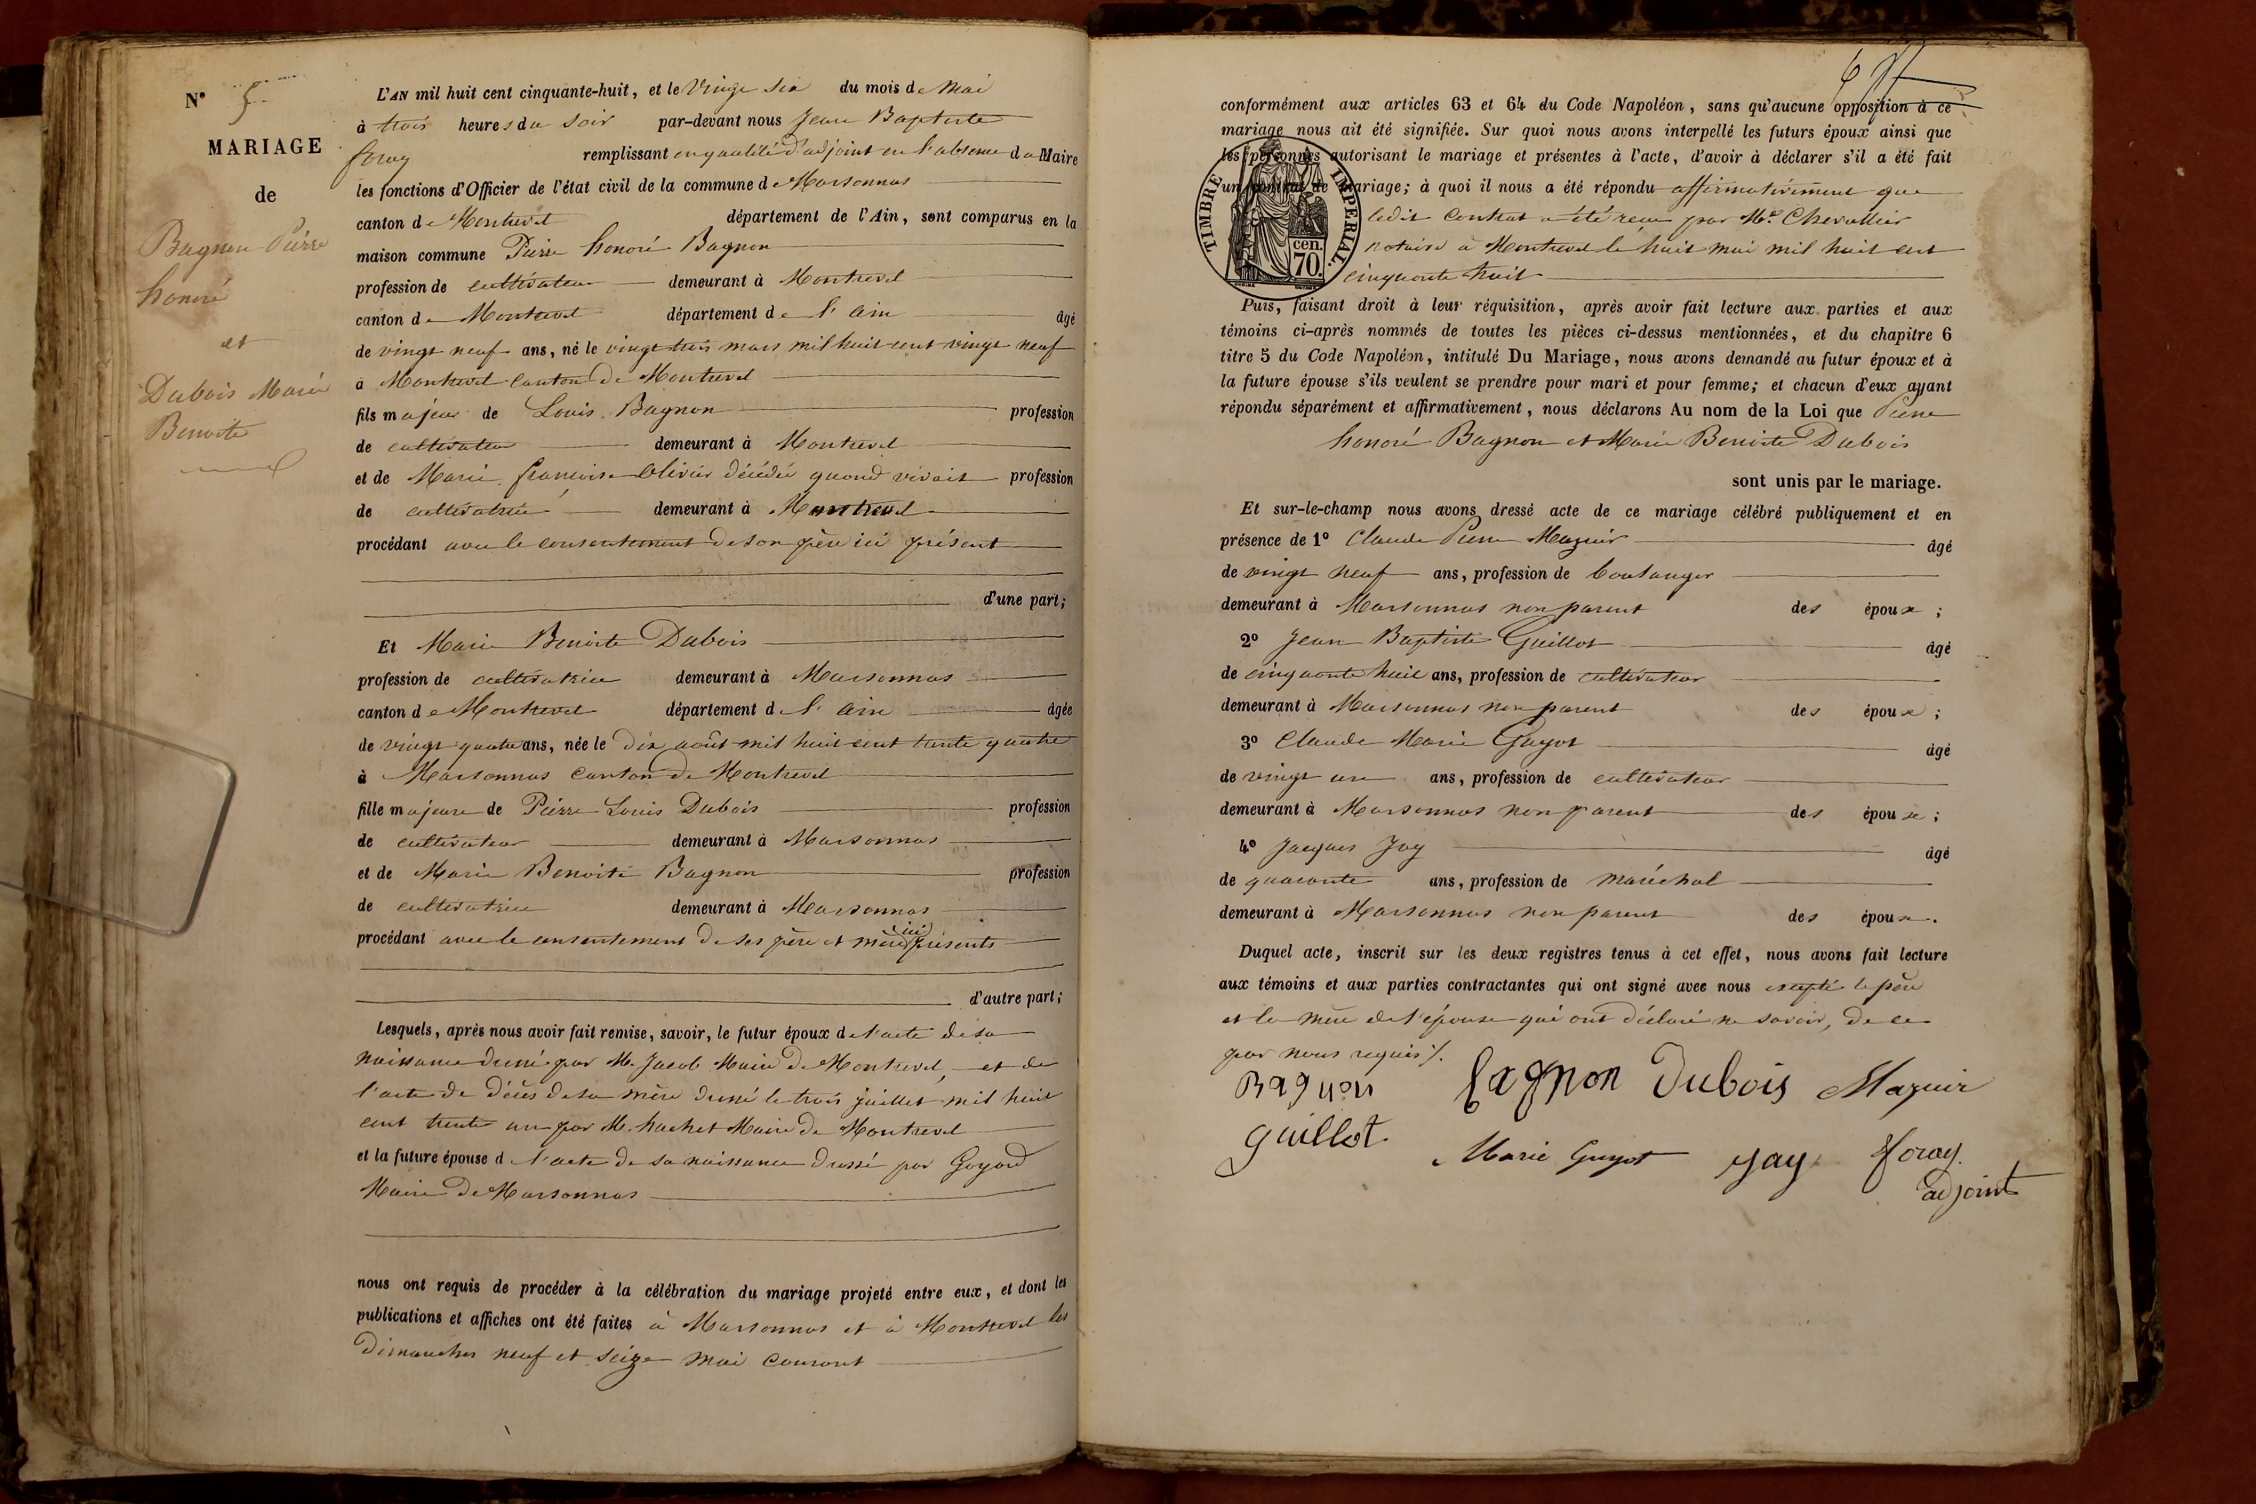 N° 5
MARIAGE
de
Bagnon Pierre
honoré
et
Dubois Marie
Benoite
L'AN mil huit cent cinquante-huit, et le vingt six du mois de Mai
à trois heures du soir par-devant nous Jean Baptiste
foray remplissant en qualité d'adjoint en l'absence du Maire
les fonctions d'Officier de l'état civil de la commune de Marsonnas
canton de Montrevel département de l'Ain, sont comparus en la
maison commune Pierre honoré Bagnon
profession de cultivateur demeurant à Montrevel
canton de Montrevel département de l'ain âgé
de vingt neuf ans, né le vingt trois mars mil huit cent vingt neuf
à Montrevel canton de Montrevel
fils majeur de Louis Bagnon profession
de cultivateur demeurant à Montrevel
et de Marie francoise Olivier décédée quand vivait profession
de cultivatrice demeurant à Montrevel
procédant avec le consentement de son père ici présent
d'une part;
Et Marie Benoite Dubois
profession de cultivatrice demeurant à Marsonnas
canton de Montrevel département de l'ain âgée
de vingt quatre ans, née le dix août mil huit cent trente quatre
à Marsonnas canton de Montrevel
fille majeure de Pierre Louis Dubois profession
de cultivateur demeurant à Marsonnas
et de Marie Benoite Bagnon profession
de cultivatrice demeurant à Marsonnas
procédant avec le consentement de ses père et mère ici présents
d'autre part;
Lesquels, après nous avoir fait remise, savoir, le futur époux de l'acte de sa
naissance dréssé par M. Jacob Maire de Montrevel, et de
l'acte de décès de sa mère dressé le trois juillet mil huit
cent trente un par M. huchet Maire de Montrevel
et la future épouse de l'acte de sa naissance dressé par Goyard
Maire de Marsonnas
nous ont requis de procéder à la célébration du mariage projeté entre eux, et dont les
publications et affiches ont été faites à Marsonnas et à Montrevel les
dimanches neuf et seize mai courant
conformément aux articles 63 et 64 du Code Napoléon, sans qu'aucune opposition à ce
mariage nous ait été signifiée. Sur quoi nous avons interpellé les futurs époux ainsi que
les personnes autorisant le mariage et présentes à l'acte, d'avoir à déclarer s'il a été fait
un contrat de mariage; à quoi il nous a été répondu affirmativement que
ledit contrat a été reçu par Me. Chevallier
notaire à Montrevel le huit mai mil huit cent
cinquante huit
TIMBRE IMPERIAL.
cen.
70.
Puis, faisant droit à leur réquisition, après avoir fait lecture aux parties et aux
témoins ci-après nommés de toutes les pièces ci-dessus mentionnées, et du chapitre 6
titre 5 du Code Napoléon, intitulé Du Mariage, nous avons demandé au futur époux et à
la future épouse s'ils veulent se prendre pour mari et pour femme; et chacun d'eux ayant
répondu séparément et affirmativement, nous déclarons Au nom de la Loi que Pierre
honoré Bagnon et Marie Benoite Dubois
sont unis par le mariage.
Et sur-le-champ nous avons dressé acte de ce mariage célébré publiquement et en
présence de 1° Claude Pierre Mazuir âgé
de vingt neuf ans, profession de boulanger
demeurant à Marsonnas non parent des époux;
2° Jean Baptiste Guillot âgé
de cinquante huit ans, profession de cultivateur
demeurant à Marsonnas non parent des époux;
3° Claude Marie Guyot âgé
de vingt un ans, profession de cultivateur
demeurant à Marsonnas non parent des époux;
4° Jacques Jay âgé
de quarante ans, profession de maréchal
demeurant à Marsonnas non parent des époux.
Duquel acte, inscrit sur les deux registres tenus à cet effet, nous avons fait lecture
aux témoins et aux parties contractantes qui ont signé avec nous excepté le père
et la mère de l'épouse qui ont déclaré ne savoir, de ce
par nous requis ./.
Bagnon Bagnon Dubois Mazuir
guillot Marie Guyot Jay foray
adjoint